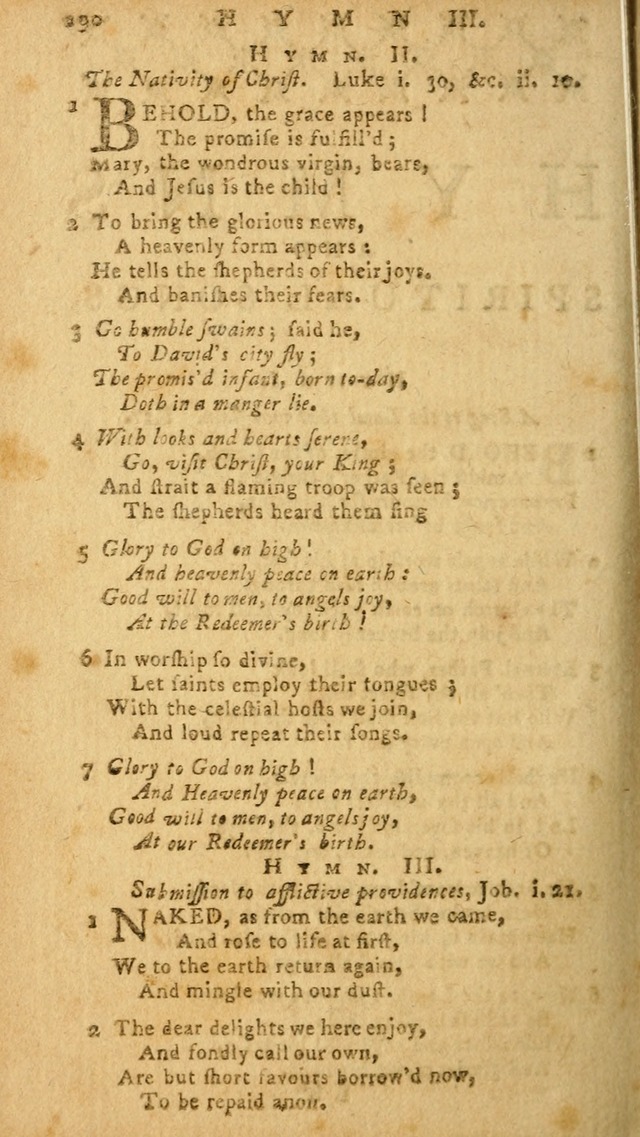 290 H Y M N III.
H Y M N. II.
The Nativity of Chriſt. Luke i. 30, &c. ii. 10.
1 BEHOLD, the grace appears !
The promiſe is fulfill'd ;
Mary, the wondrous virgin, bears,
And Jeſus is the child !
2 To bring the glorious news,
A heavenly form appears :
He tells the ſhepherds of their joys.
And baniſhes their fears.
3 Go humble ſwains ; ſaid he,
To David's city fly ;
The promis'd infant, born to-day,
Doth in a manger lie.
4 With looks and hearts ſerene,
Go, viſit Chriſt, your King ;
And ſtrait a flaming troop was ſeen ;
The ſhepherds heard them ſing
5 Glory to God on high !
And heavenly peace on earth :
Good will to men, to angels joy,
At the Redeemer's birth !
6 In worſhip ſo divine,
Let ſaints employ their tongues ;
With the celeſtial hoſts we join,
And loud repeat their ſongs.
7 Glory to God on high !
And Heavenly peace on earth,
Good will to men, to angels joy,
At our Redeemer's birth.
H Y M N. III.
Submiſſion to afflictive providences, Job. i. 21.
1 NAKED, as from the earth we came,
And roſe to life at firſt,
We to the earth return again,
And mingle with our duſt.
2 The dear delights we here enjoy,
And fondly call our own,
Are but ſhort favours borrow'd now,
To be repaid anon.